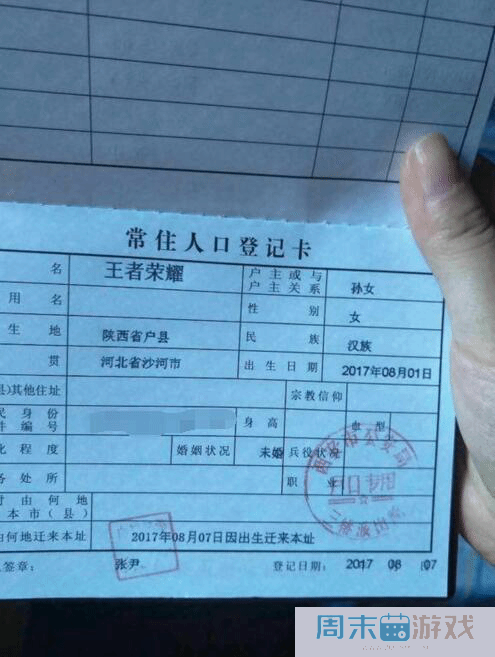 常住人口登记卡
名 王者荣耀 户主或与户主关系 孙女
用名 性别 女
生地 陕西省户县 民族 汉族
贯 河北省沙河市 出生日期 2017年08月01日
县)其他住址 宗教信仰
民身份件编号 身高 血型
化程度 婚姻状况 未婚 兵役状况
务处所 职业
时由何地本市(县)
何地迁来本址 2017年08月07日因出生迁来本址
签章: 张尹 登记日期: 2017 08 07
户口专用
周末游戏